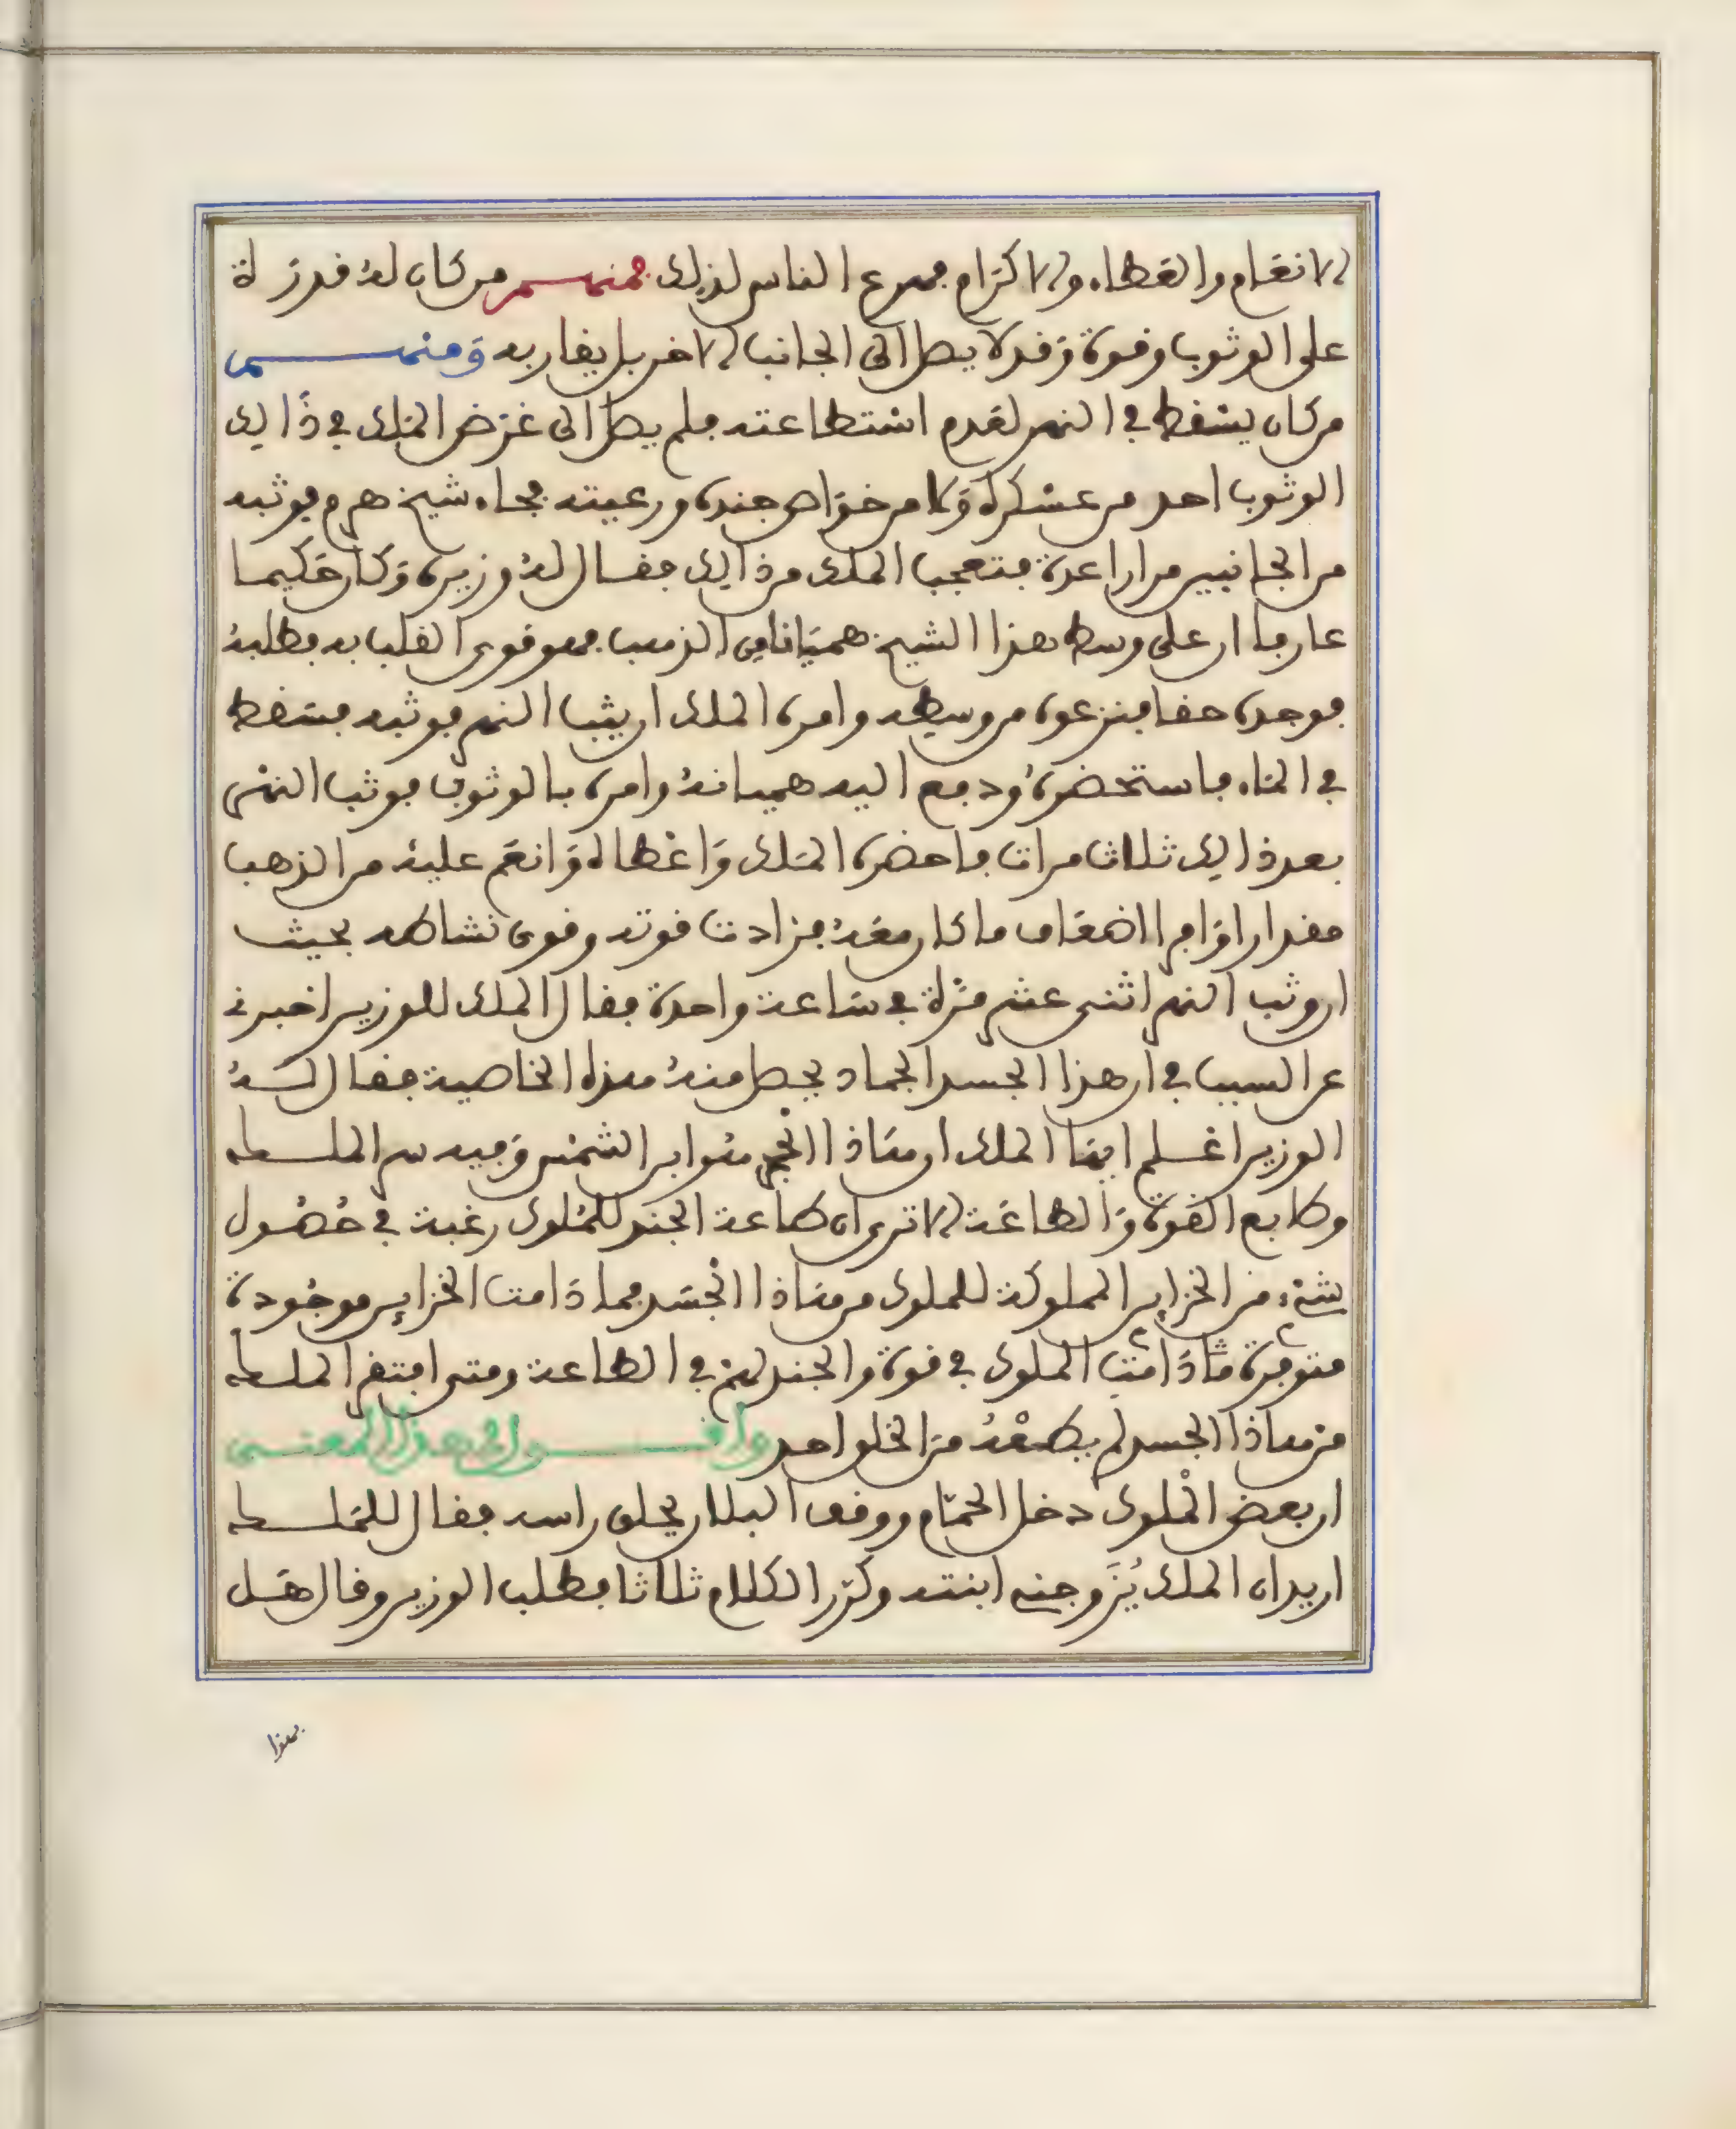 الانعام والعطاء والاكرام فهرع الناس لذلك فمنهم من كان له قدرة
على الوثوب وقوة وقد لا يصل الى الجانب الاخر بل يقاربه ومنهم
من كان يسقط في النهر لعدم استطاعته فلم يصل الى غرض الملك في ذالك
الوثوب احد من عسكره ولا من خواص جنده ورعيته فجاء شيخ هرم فوثبه
من الجانبين مرارا عدة فتعجب الملك من ذالك فقال له وزيره وكان حكيما
عارفا ان على وسط هذا الشيخ هميانا من الذهب فهو قوي القلب به فطلبه
فوجده حقا فنزعوه من وسطه وامره الملك ان يثب النهر فوثبه فسقط
في الماء فاستحضره ودفع اليه هميانه وامره بالوثوب فوثب النهر
بعد ذالك ثلاث مرات فاحضره الملك واعطاه وانعم عليه من الذهب
مقدارا وافرا اضعاف ما كان معه فزادت قوته وقوي نشاطه بحيث
ان وثب النهر اثنى عشر مرة في ساعة واحدة فقال الملك للوزير اخبرني
عن السبب في ان هذا الجسد الجماد يحصل منه هذه الخاصية فقال له
الوزير اعلم ايها الملك ان هاذا الحجر هو ابن الشمس وفيه سر الملك
وطابع القوة والطاعة الا ترى ان طاعة الجند للملوك رغبة في حصول
شيء من الخزاين المملوكة للملوك من هاذا الجسد فما دامت الخزاين موجودة
متوفرة ما دامت الملوك في قوة والجند لهم في الطاعة ومتى افتقر الملك
من هاذا الجسد لم يطعه من الخلق احد واقول في هذا المعنى
ان بعض الملوك دخل الحمام ووقف البلان يحلق راسه فقال للملك
اريد ان الملك يزوجني ابنته وكرر الكلام ثلاثا فطلب الوزير وقال هل
بهذا